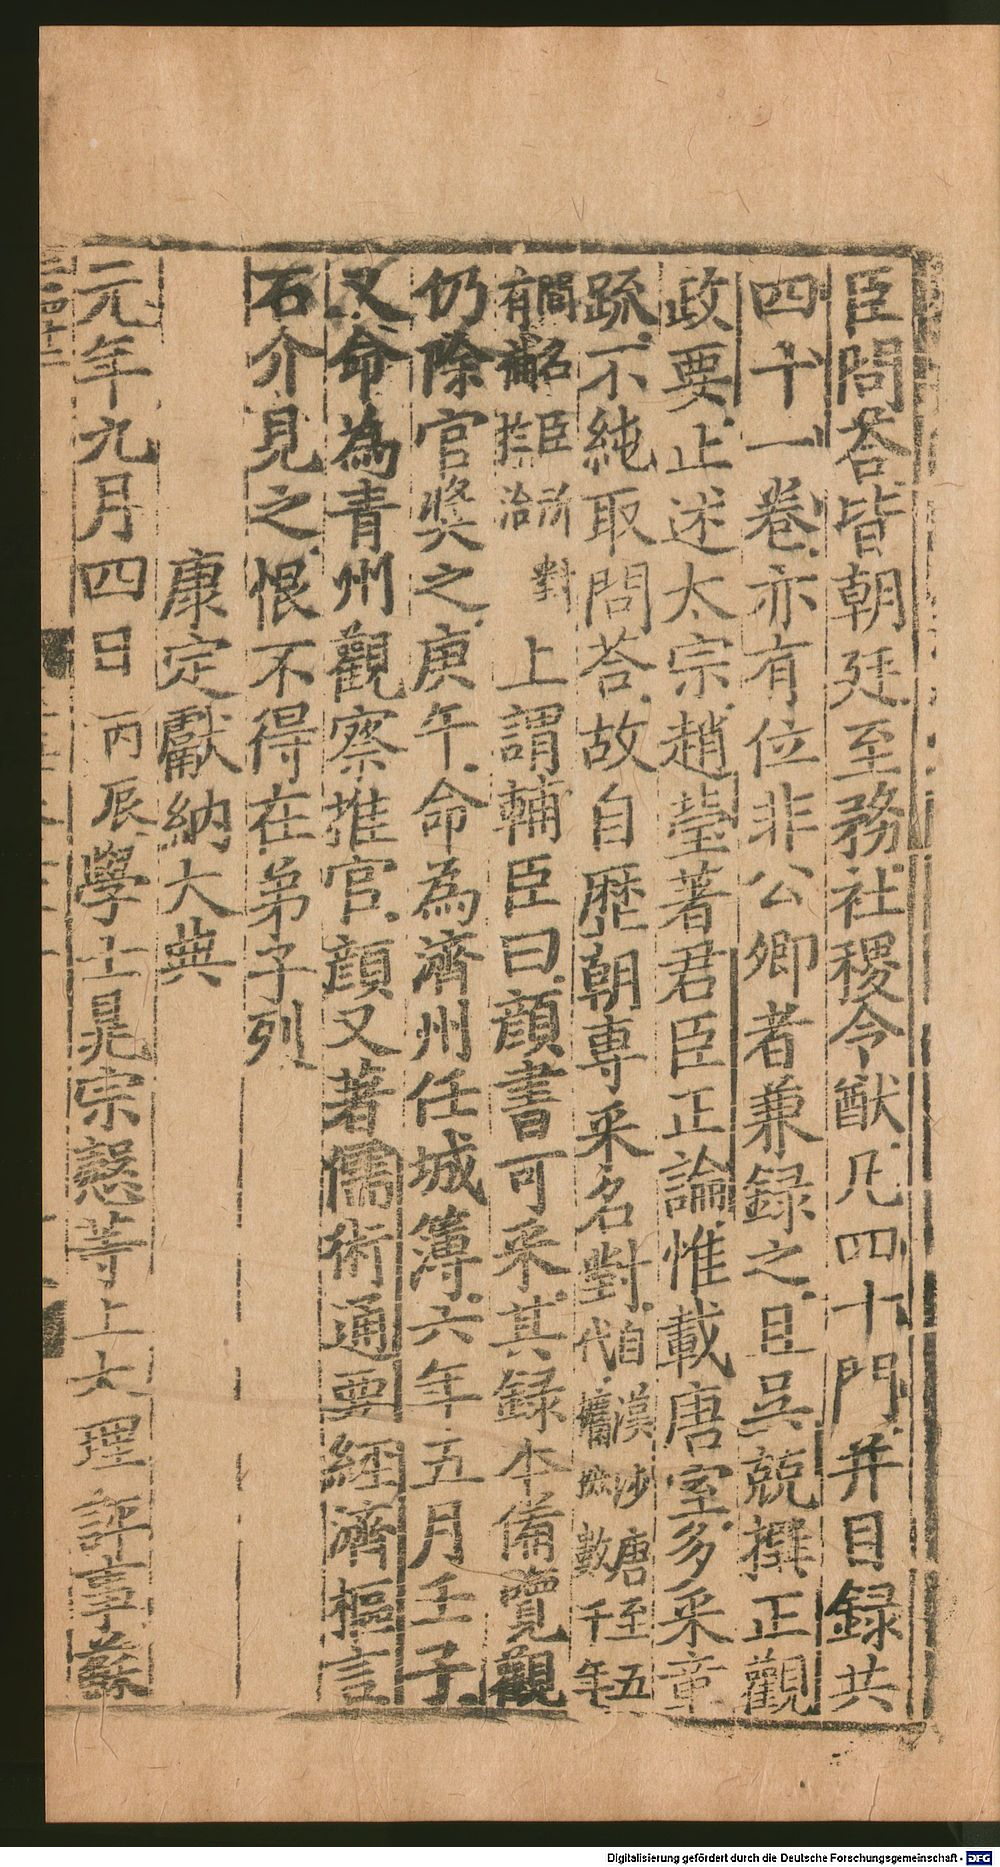 臣問荅皆朝廷至務社稷令猷凡四十門并目録共
四十一卷亦有位非公卿者兼録之且吳兢撰正觀
政要止述太宗趙瑩著君臣正論惟載唐室多采章
疏不純取問荅故自歷朝專采名對自漢涉唐至五代攟摭數千年
間名臣所對有補於治上謂輔臣曰顔書可采其録本備覽觀
仍除官奬之庚午命為濟州任城簿六年五月壬子
又命為青州觀察推官顔又著儒術通要經濟樞言
石介見之恨不得在弟子列
康定獻納大典
元年九月四日丙辰學士晁宗慤等上大理評事蘇
Digitalisierung gefördert durch die Deutsche Forschungsgemeinschaft - DFG